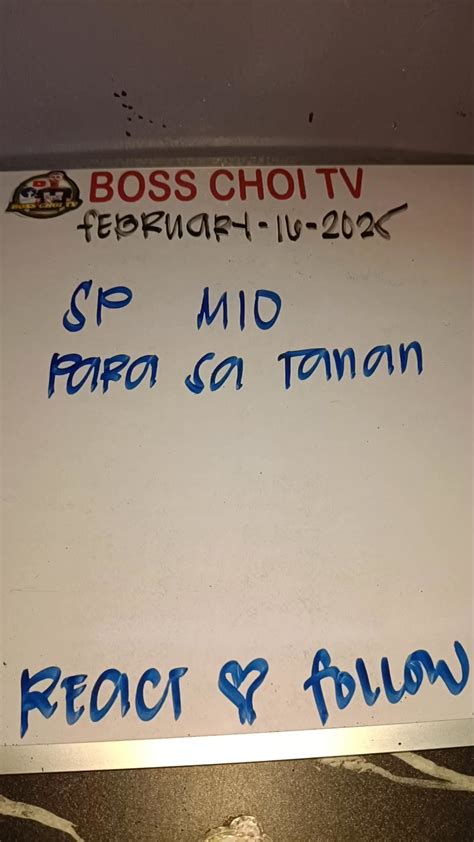 BOSS CHOI TV
BOSS CHOI TV
FEBRUARY-16-2025
SP MIO
PARA SA TANAN
REACT ♡ FOLLOW